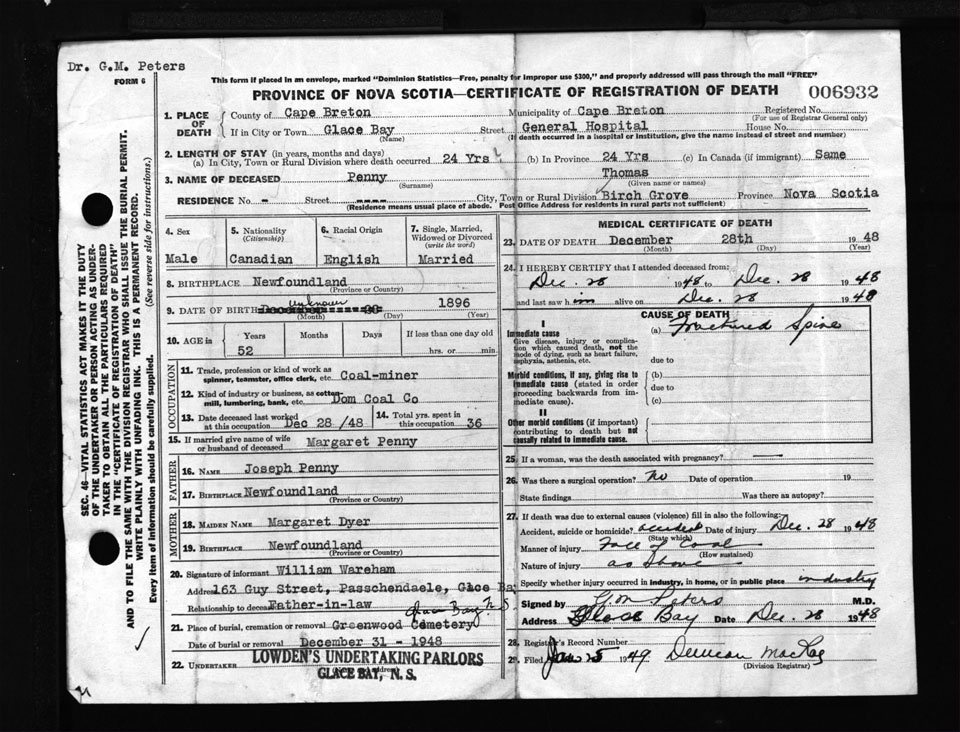 Dr. G.M. Peters
FORM 6
This form if placed in an envelope, marked "Dominion Statistics—Free, penalty for improper use $300," and properly addressed will pass through the mail "FREE"
PROVINCE OF NOVA SCOTIA—CERTIFICATE OF REGISTRATION OF DEATH 006932
SEC. 46—VITAL STATISTICS ACT MAKES IT THE DUTY
OF THE UNDERTAKER OR PERSON ACTING AS UNDER-
TAKER TO OBTAIN ALL THE PARTICULARS REQUIRED
IN THE "CERTIFICATE OF REGISTRATION OF DEATH"
AND TO FILE THE SAME WITH THE DIVISION REGISTRAR WHO SHALL ISSUE THE BURIAL PERMIT.
WRITE PLAINLY WITH UNFADING INK. THIS IS A PERMANENT RECORD.
Every item of information should be carefully supplied. (See reverse side for instructions.)
1. PLACE OF DEATH
County of Cape Breton Municipality of Cape Breton Registered No.
(For use of Registrar General only)
If in City or Town Glace Bay Street General Hospital House No.
(Name) (If death occurred in a hospital or institution, give the name instead of street and number)
2. LENGTH OF STAY (in years, months and days)
(a) In City, Town or Rural Division where death occurred 24 Yrs (b) In Province 24 Yrs (c) In Canada (if immigrant) Same
3. NAME OF DECEASED Penny Thomas
(Surname) (Given name or names)
RESIDENCE No. - Street ---- City, Town or Rural Division Birch Grove Province Nova Scotia
(Residence means usual place of abode. Post Office Address for residents in rural parts not sufficient)
4. Sex
Male
5. Nationality
(Citizenship)
Canadian
6. Racial Origin
English
7. Single, Married,
Widowed or Divorced
(write the word)
Married
8. BIRTHPLACE Newfoundland
(Province or Country)
9. DATE OF BIRTH December 28 Unknown 1896
(Month) (Day) (Year)
10. AGE in Years Months Days If less than one day old
52 hrs. or min.
OCCUPATION
11. Trade, profession or kind of work as
spinner, teamster, office clerk, etc. Coal-miner
12. Kind of industry or business, as cotton-
mill, lumbering, bank, etc. Dom Coal Co
13. Date deceased last worked
at this occupation Dec 28 /48
14. Total yrs. spent in
this occupation 36
15. If married give name of wife
or husband of deceased Margaret Penny
FATHER
16. NAME Joseph Penny
17. BIRTHPLACE Newfoundland
(Province or Country)
MOTHER
18. MAIDEN NAME Margaret Dyer
19. BIRTHPLACE Newfoundland
(Province or Country)
20. Signature of informant William Wareham
Address 163 Guy Street, Passchendaele, Glace Ba
Relationship to deceased Father-in-law
Glace Bay N S
21. Place of burial, cremation or removal Greenwood Cemetery
Date of burial or removal December 31 - 1948
22. UNDERTAKER LOWDEN'S UNDERTAKING PARLORS
(Name and address)
GLACE BAY, N. S.
MEDICAL CERTIFICATE OF DEATH
23. DATE OF DEATH December 28th 1948
(Month) (Day) (Year)
24. I HEREBY CERTIFY that I attended deceased from:
Dec. 28 1948 to Dec. 28 1948
and last saw him alive on Dec. 28 1948
CAUSE OF DEATH
I
Immediate cause (a) Fractured Spine
Give disease, injury or complica-
tion which caused death, not the
mode of dying, such as heart failure,
asphyxia, asthenia, etc. due to
Morbid conditions, if any, giving rise to (b)
immediate cause (stated in order due to
proceeding backwards from im-
mediate cause). (c)
II
Other morbid conditions (if important)
contributing to death but not
causally related to immediate cause.
25. If a woman, was the death associated with pregnancy?
26. Was there a surgical operation? No Date of operation 19
State findings Was there an autopsy?
27. If death was due to external causes (violence) fill in also the following:
Accident, suicide or homicide? accident Date of injury Dec. 28 1948
(State which)
Manner of injury Fall of Coal
(How sustained)
Nature of injury as above
Specify whether injury occurred in industry, in home, or in public place industry
Signed by G M Peters M.D.
Address Glace Bay Date Dec. 28 1948
28. Registrar's Record Number
29. Filed Jan 25 1949 Duncan MacKay
(Division Registrar)